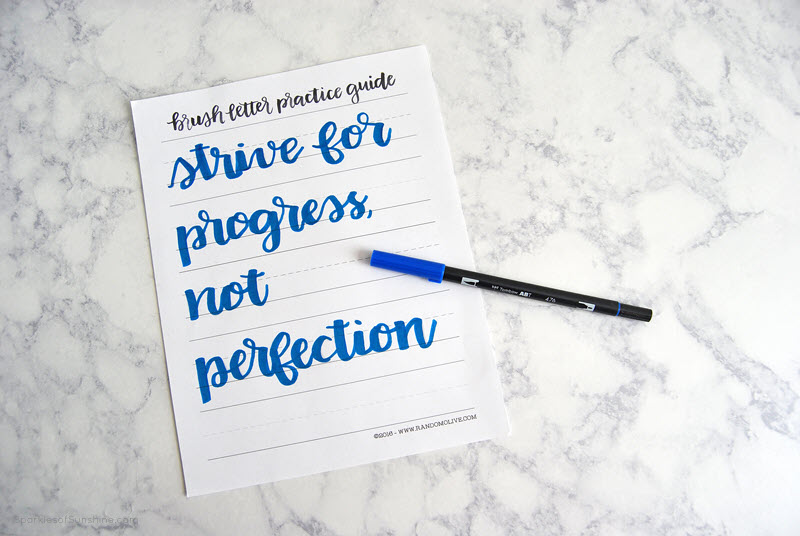 brush letter practice guide
strive for
progress,
not
perfection
©2016 - WWW.RANDOMOLIVE.COM
Tombow ABT 476
SparklesofSunshine.com